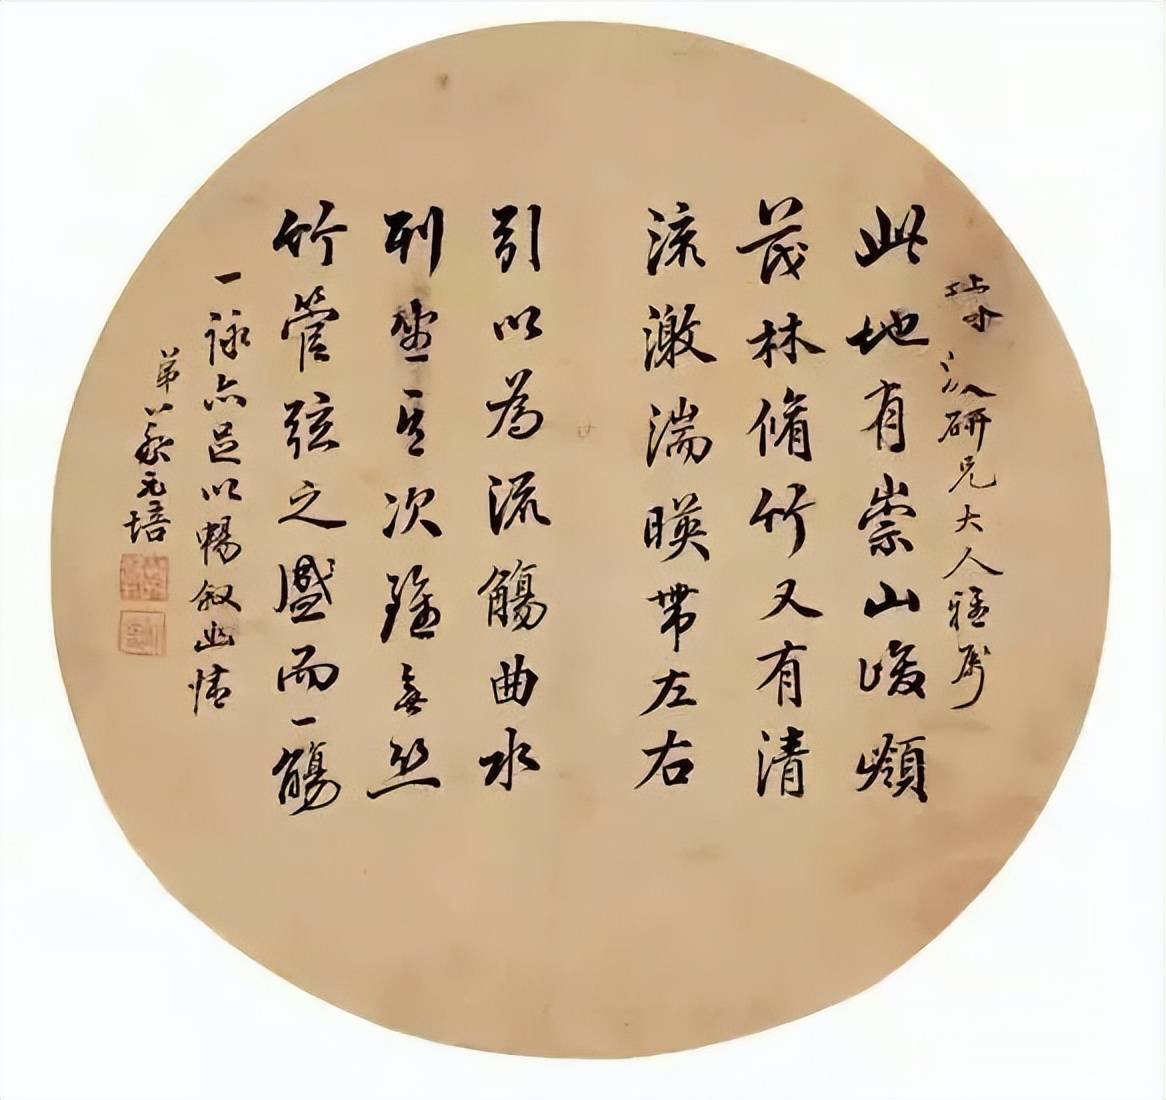 研兄大人雅屬
此地有崇山峻嶺
茂林脩竹又有清
流激湍暎帶左右
引以為流觴曲水
列坐其次雖無絲
竹管弦之盛而一觴
一詠亦足以暢叙幽情
弟蔡元培